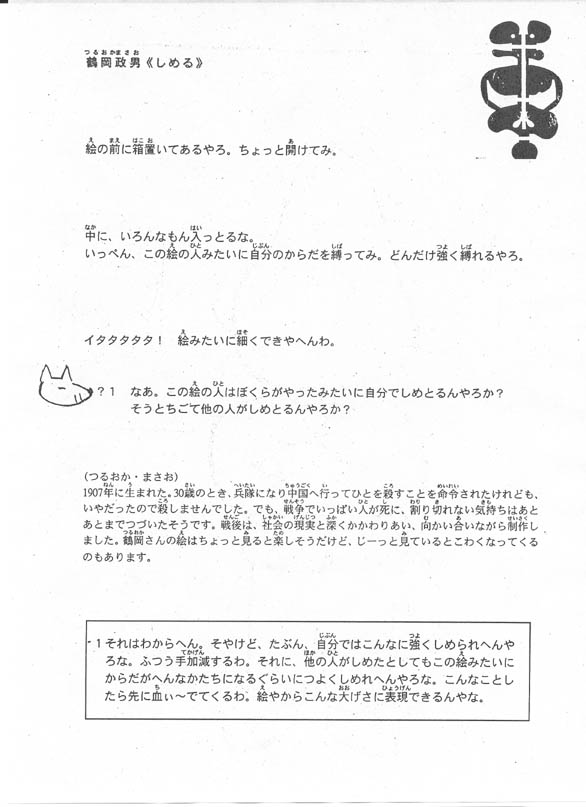 つるおかまさお
鶴岡政男《しめる》
絵の前に箱置いてあるやろ。ちょっと開けてみ。
中に、いろんなもん入っとるな。
いっぺん、この絵の人みたいに自分のからだを縛ってみ。どんだけ強く縛れるやろ。
イタタタタタ！　絵みたいに細くできやへんわ。
？１　なあ。この絵の人はぼくらがやったみたいに自分でしめとるんやろか？
そうとちごて他の人がしめとるんやろか？
（つるおか・まさお）
1907年に生まれた。30歳のとき、兵隊になり中国へ行ってひとを殺すことを命令されたけれども、
いやだったので殺しませんでした。でも、戦争でいっぱい人が死に、割り切れない気持ちはあと
あとまでつづいたそうです。戦後は、社会の現実と深くかかわりあい、向かい合いながら制作し
ました。鶴岡さんの絵はちょっと見ると楽しそうだけど、じーっと見ているとこわくなってくる
のもあります。
１それはわからへん。そやけど、たぶん、自分ではこんなに強くしめられへんや
ろな。ふつう手加減するわ。それに、他の人がしめたとしてもこの絵みたいに
からだがへんなかたちになるぐらいにつよくしめれへんやろな。こんなことし
たら先に血ぃ～でてくるわ。絵やからこんな大げさに表現できるんやな。